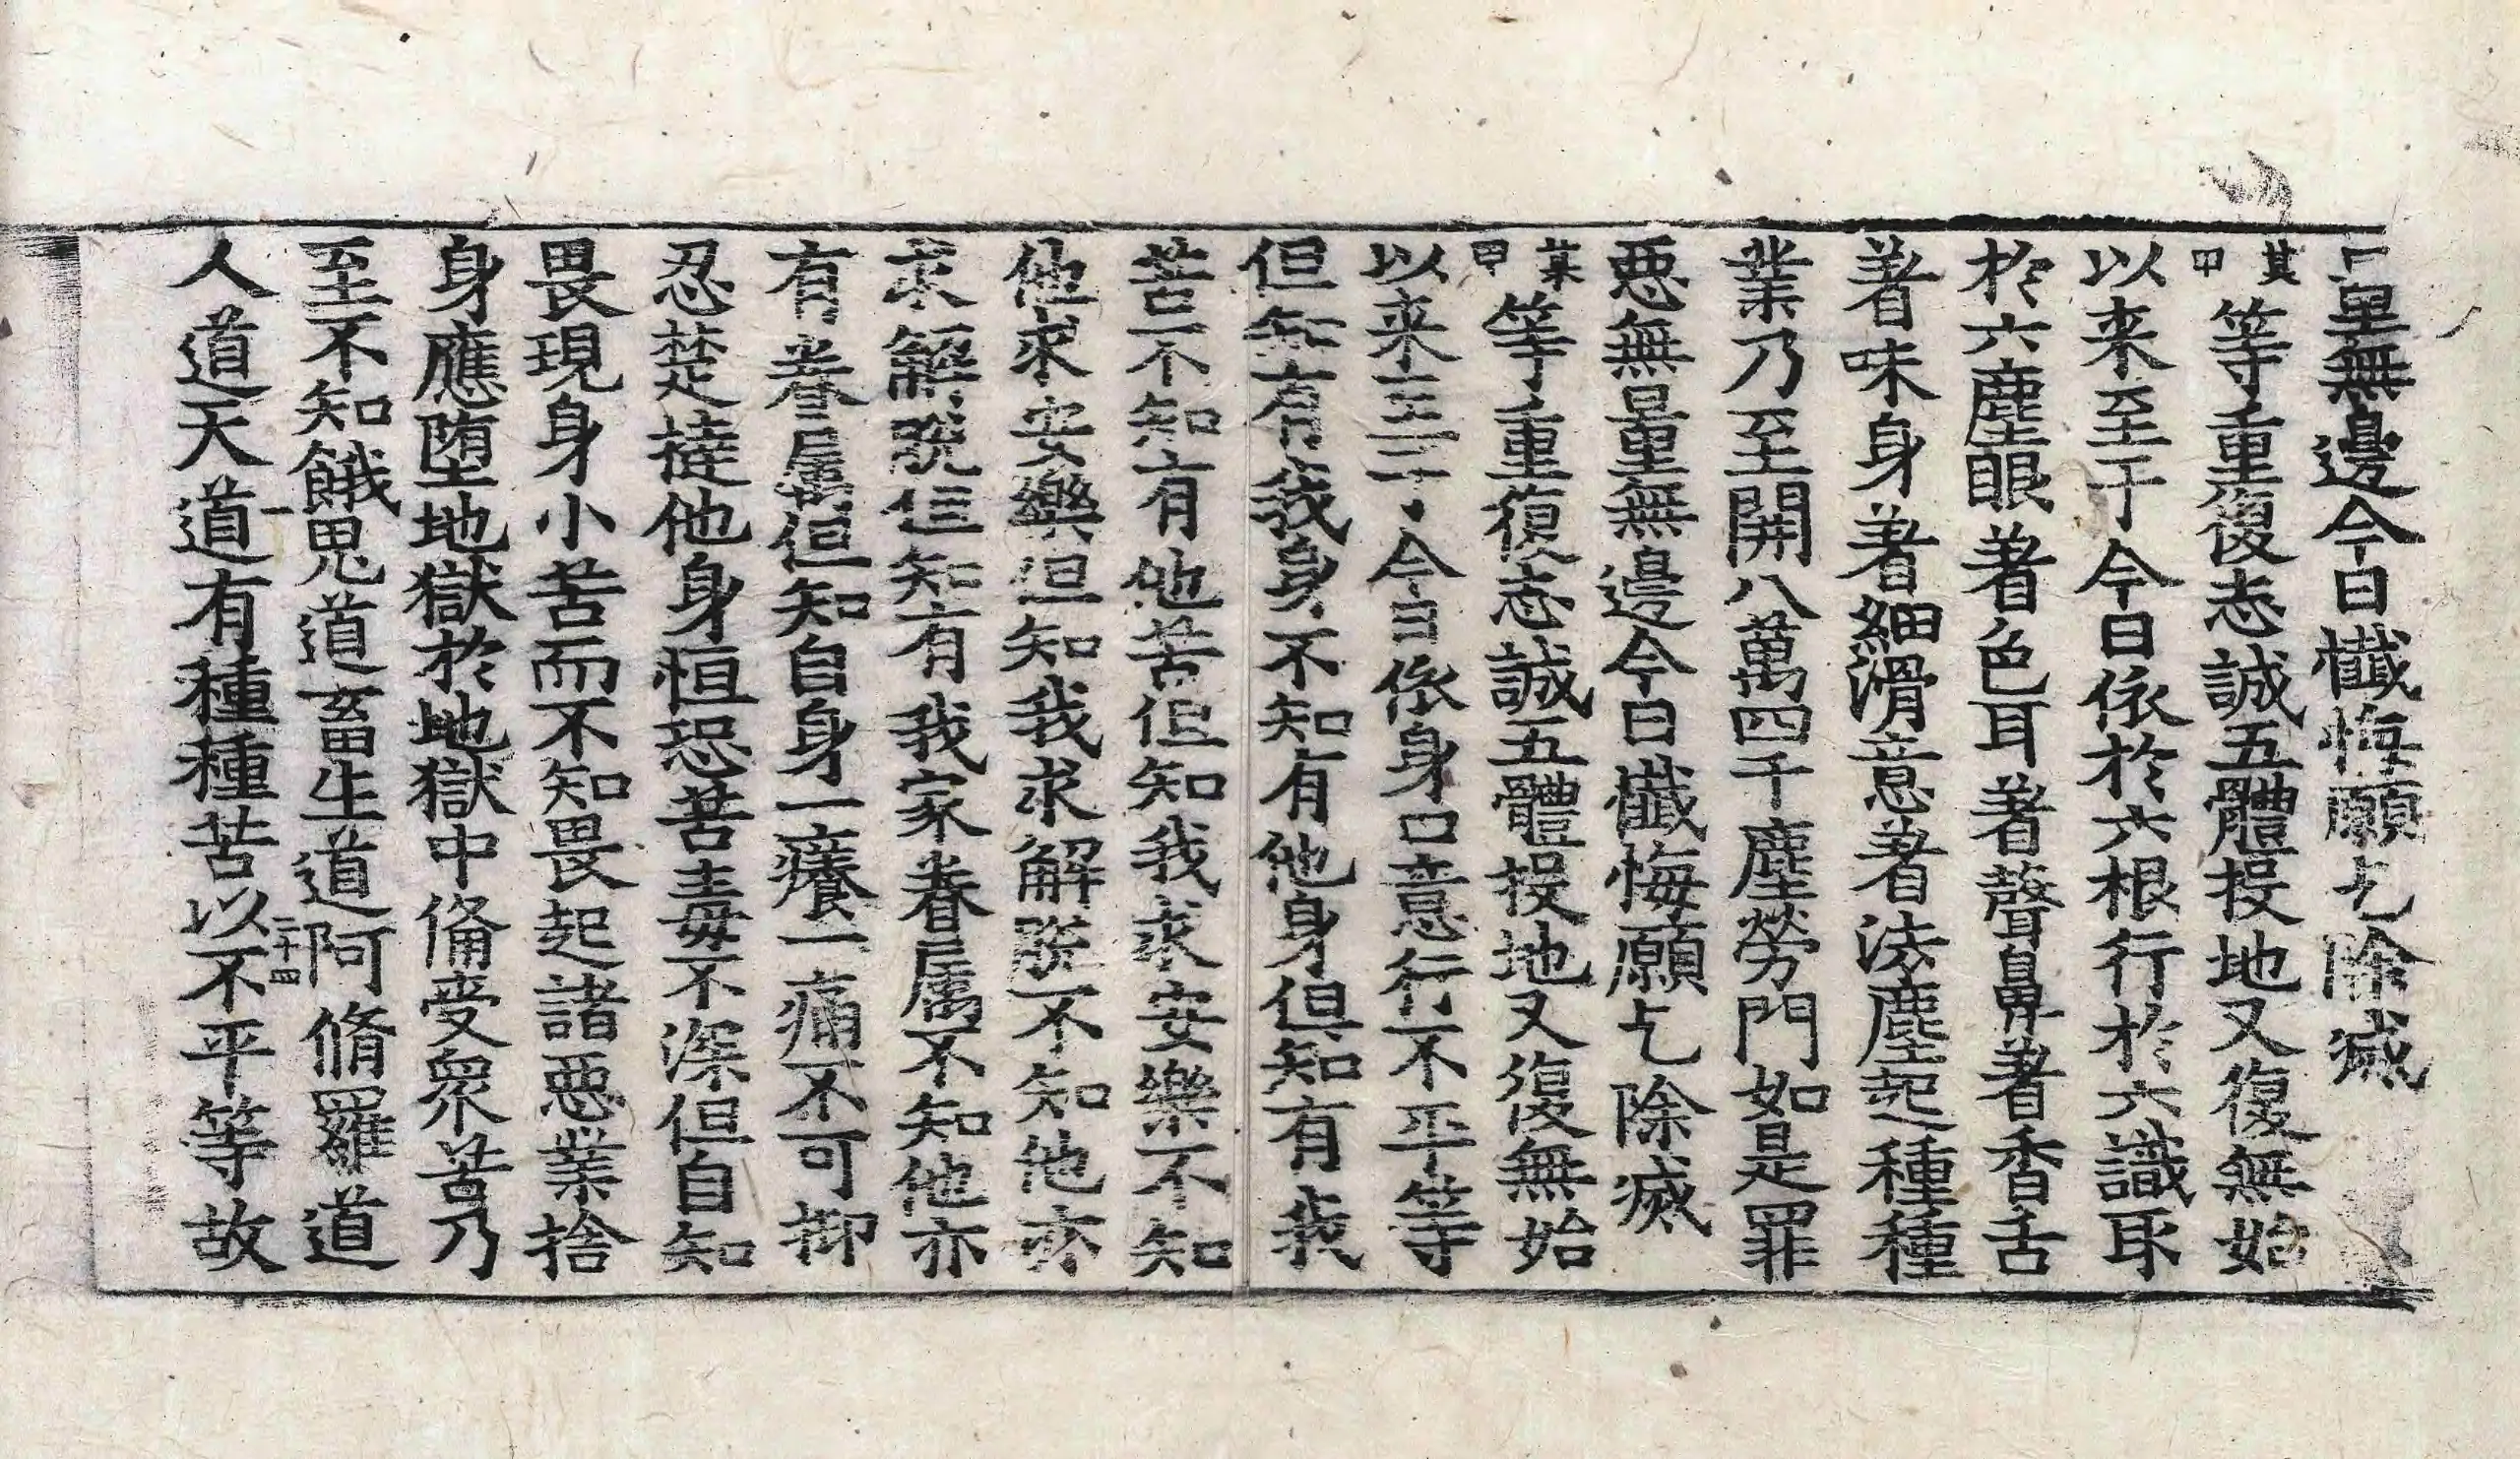 量無邊今日懺悔願乞除滅
某甲等重復志誠五體投地又復無始
以来至于今日依於六根行於六識耴
於六塵眼著色耳著聲鼻著香舌
著味身著細滑意著法塵起種種
業乃至開八萬四千塵勞門如是罪
惡無量無邊今日懺悔願乞除滅
某甲等重復志誠五體投地又復無始
以来至于今日依身口意行不平等
但知有我身不知有他身但知有我
苦不知有他苦但知我求安樂不知
他求安樂但知我求解脫不知他亦
求解脫但知有我家眷屬不知他亦
有眷屬但知自身一癢一痛不可抑
忍楚撻他身恒恐苦毒不深但自知
畏現身小苦而不知畏起諸惡業捨
身應堕地獄於地獄中俻受衆苦乃
至不知餓鬼道畜生道阿脩羅道
一 二十四
人道天道有種種苦以不平等故